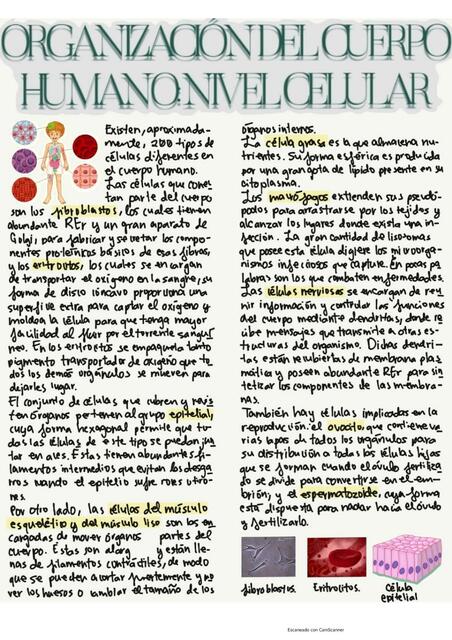 ORGANIZACIÓN DEL CUERPO
HUMANO: NIVEL CELULAR
Existen, aproximada-
mente, 200 tipos de
células diferentes en
el cuerpo humano.
Las células que cons
tan parte del cuerpo
son los fibroblastos, los cuales tienen
abundante RER y un gran aparato de
Golgi, para fabricar y secretar los compo-
nentes proteínicos básicos de esas fibras,
y los eritrocitos, los cuales se encargan
de transportar el oxígeno en la sangre, su
forma de disco bicóncavo proporciona una
superficie extra para captar el oxígeno y
moldea la célula para que tenga mayor
facilidad al fluir por el torrente sanguí
neo. En los eritrocitos se empaqueta tanto
pigmento transportador de oxígeno que to
dos los demás orgánulos se mueven para
dejarles lugar.
El conjunto de células que cubren y revis
ten órganos pertenen al grupo epitelial,
cuya forma hexagonal permite que to
das las células de este tipo se puedan jun
tar en ales. Estas tienen abundantes fi-
lamentos intermedios que evitan los desga
rros cuando el epitelio sufre roces u tiro-
nes.
Por otro lado, las células del músculo
esquelético y del músculo liso son las en
cargadas de mover órganos partes del
cuerpo. Éstas son alarg y están lle-
nas de filamentos contráctiles, de modo
que se pueden acortar fuertemente y mo
ver los huesos o cambiar el tamaño de los
órganos internos.
La célula grasa es la que almacena nu-
trientes. Su forma esférica es producida
por una gran gota de lípido presente en su
citoplasma.
Los macrófagos extienden sus pseudó-
podos para arrastrarse por los tejidos y
alcanzar los lugares donde existe una in-
fección. La gran cantidad de lisosomas
que posee esta célula digiere los microorga-
nismos infecciosos que capture. En pocas pa
labras son los que combaten enfermedades.
Las células nerviosas se encargan de reu
nir información y controlar las funciones
del cuerpo mediante dendritas, donde re
cibe mensajes que transmite a otras es-
tructuras del organismo. Dichas dendri-
tas están recubiertas de membrana plas
mática y poseen abundante RER para sin
tetizar los componentes de las membra-
nas.
También hay células implicadas en la
reproducción: el ovocito que contiene va
rias copias de todos los orgánulos para
su distribución a todas las células hijas
que se forman cuando el óvulo fertiliza
do se divide para convertirse en el em-
brión, y el espermatozoide, cuya forma
está dispuesta para nadar hacia el óvulo
y fertilizarlo.
fibroblastos.
Eritrocitos.
Célula
epitelial
Escaneado con CamScanner